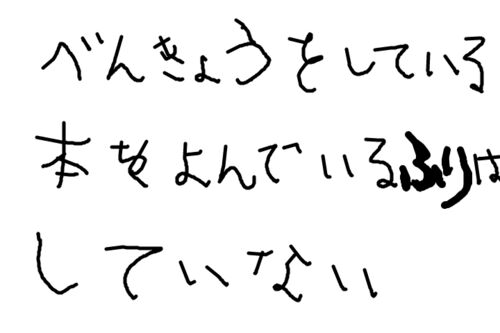 べんきょうをしている
本をよんでいるふりは
していない